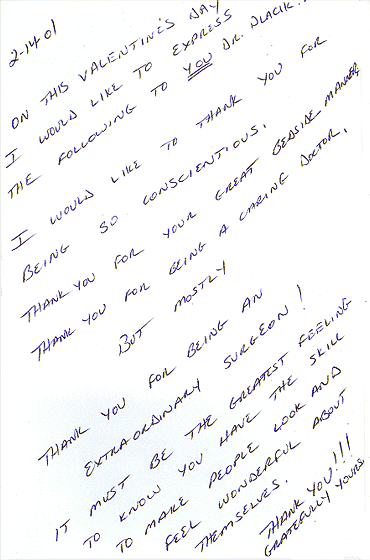 2-14-01
ON THIS VALENTINE'S DAY
I WOULD LIKE TO EXPRESS
THE FOLLOWING TO YOU DR.
I WOULD LIKE TO THANK YOU FOR
BEING SO CONSCIENTIOUS.
THANK YOU FOR YOUR GREAT BEDSIDE MANNER,
THANK YOU FOR BEING A CARING DOCTOR,
BUT MOSTLY
THANK YOU FOR BEING AN
EXTRAORDINARY SURGEON!
IT MUST BE THE GREATEST FEELING
TO KNOW YOU HAVE THE SKILL
TO MAKE PEOPLE LOOK AND
FEEL WONDERFUL ABOUT
THEMSELVES.
THANK YOU!!!
GRATEFULLY YOURS